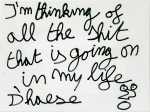 I'm thinking of
all the shit
that is going on
in my life
D'haese